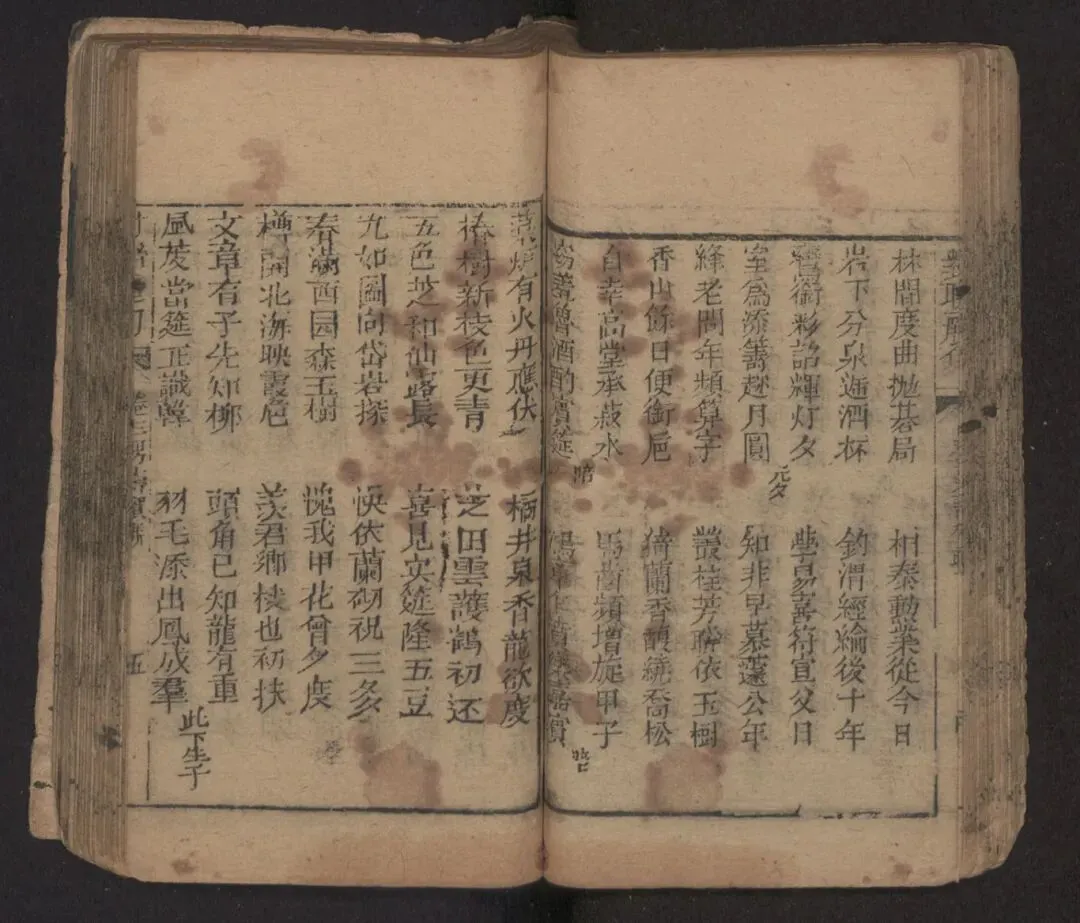 林間度曲抛棊局
相秦勳業從今日
岩下分泉遞酒杯
釣渭經綸後十年
衢彩詔輝灯夕
學易喜符宣父日
室為添籌趂月圓 元夕
知非早慕蘧公年
絳老問年頻算字
叢桂芳聨依玉樹
香山餘日便銜巵
猗蘭香馥繞喬松
自幸高堂承菽水
馬齒頻增旋甲子
酒酌賓筵
有火丹應伏
橘井泉香龍欲度
椿樹新枝色更青
芝田雲護鶴初还
五色芝和仙露長
喜見实筵隆五豆
九如圖向岱岩探
快依蘭砌祝三多
春滿西园森玉樹
愧我甲花曾夕度
樽開北海映霞巵
羡君鄉棧也初扶
文章有子先知柳
頭角已知龍有重
風茂當筵正識韓
羽毛添出鳳成羣 此下生子
五